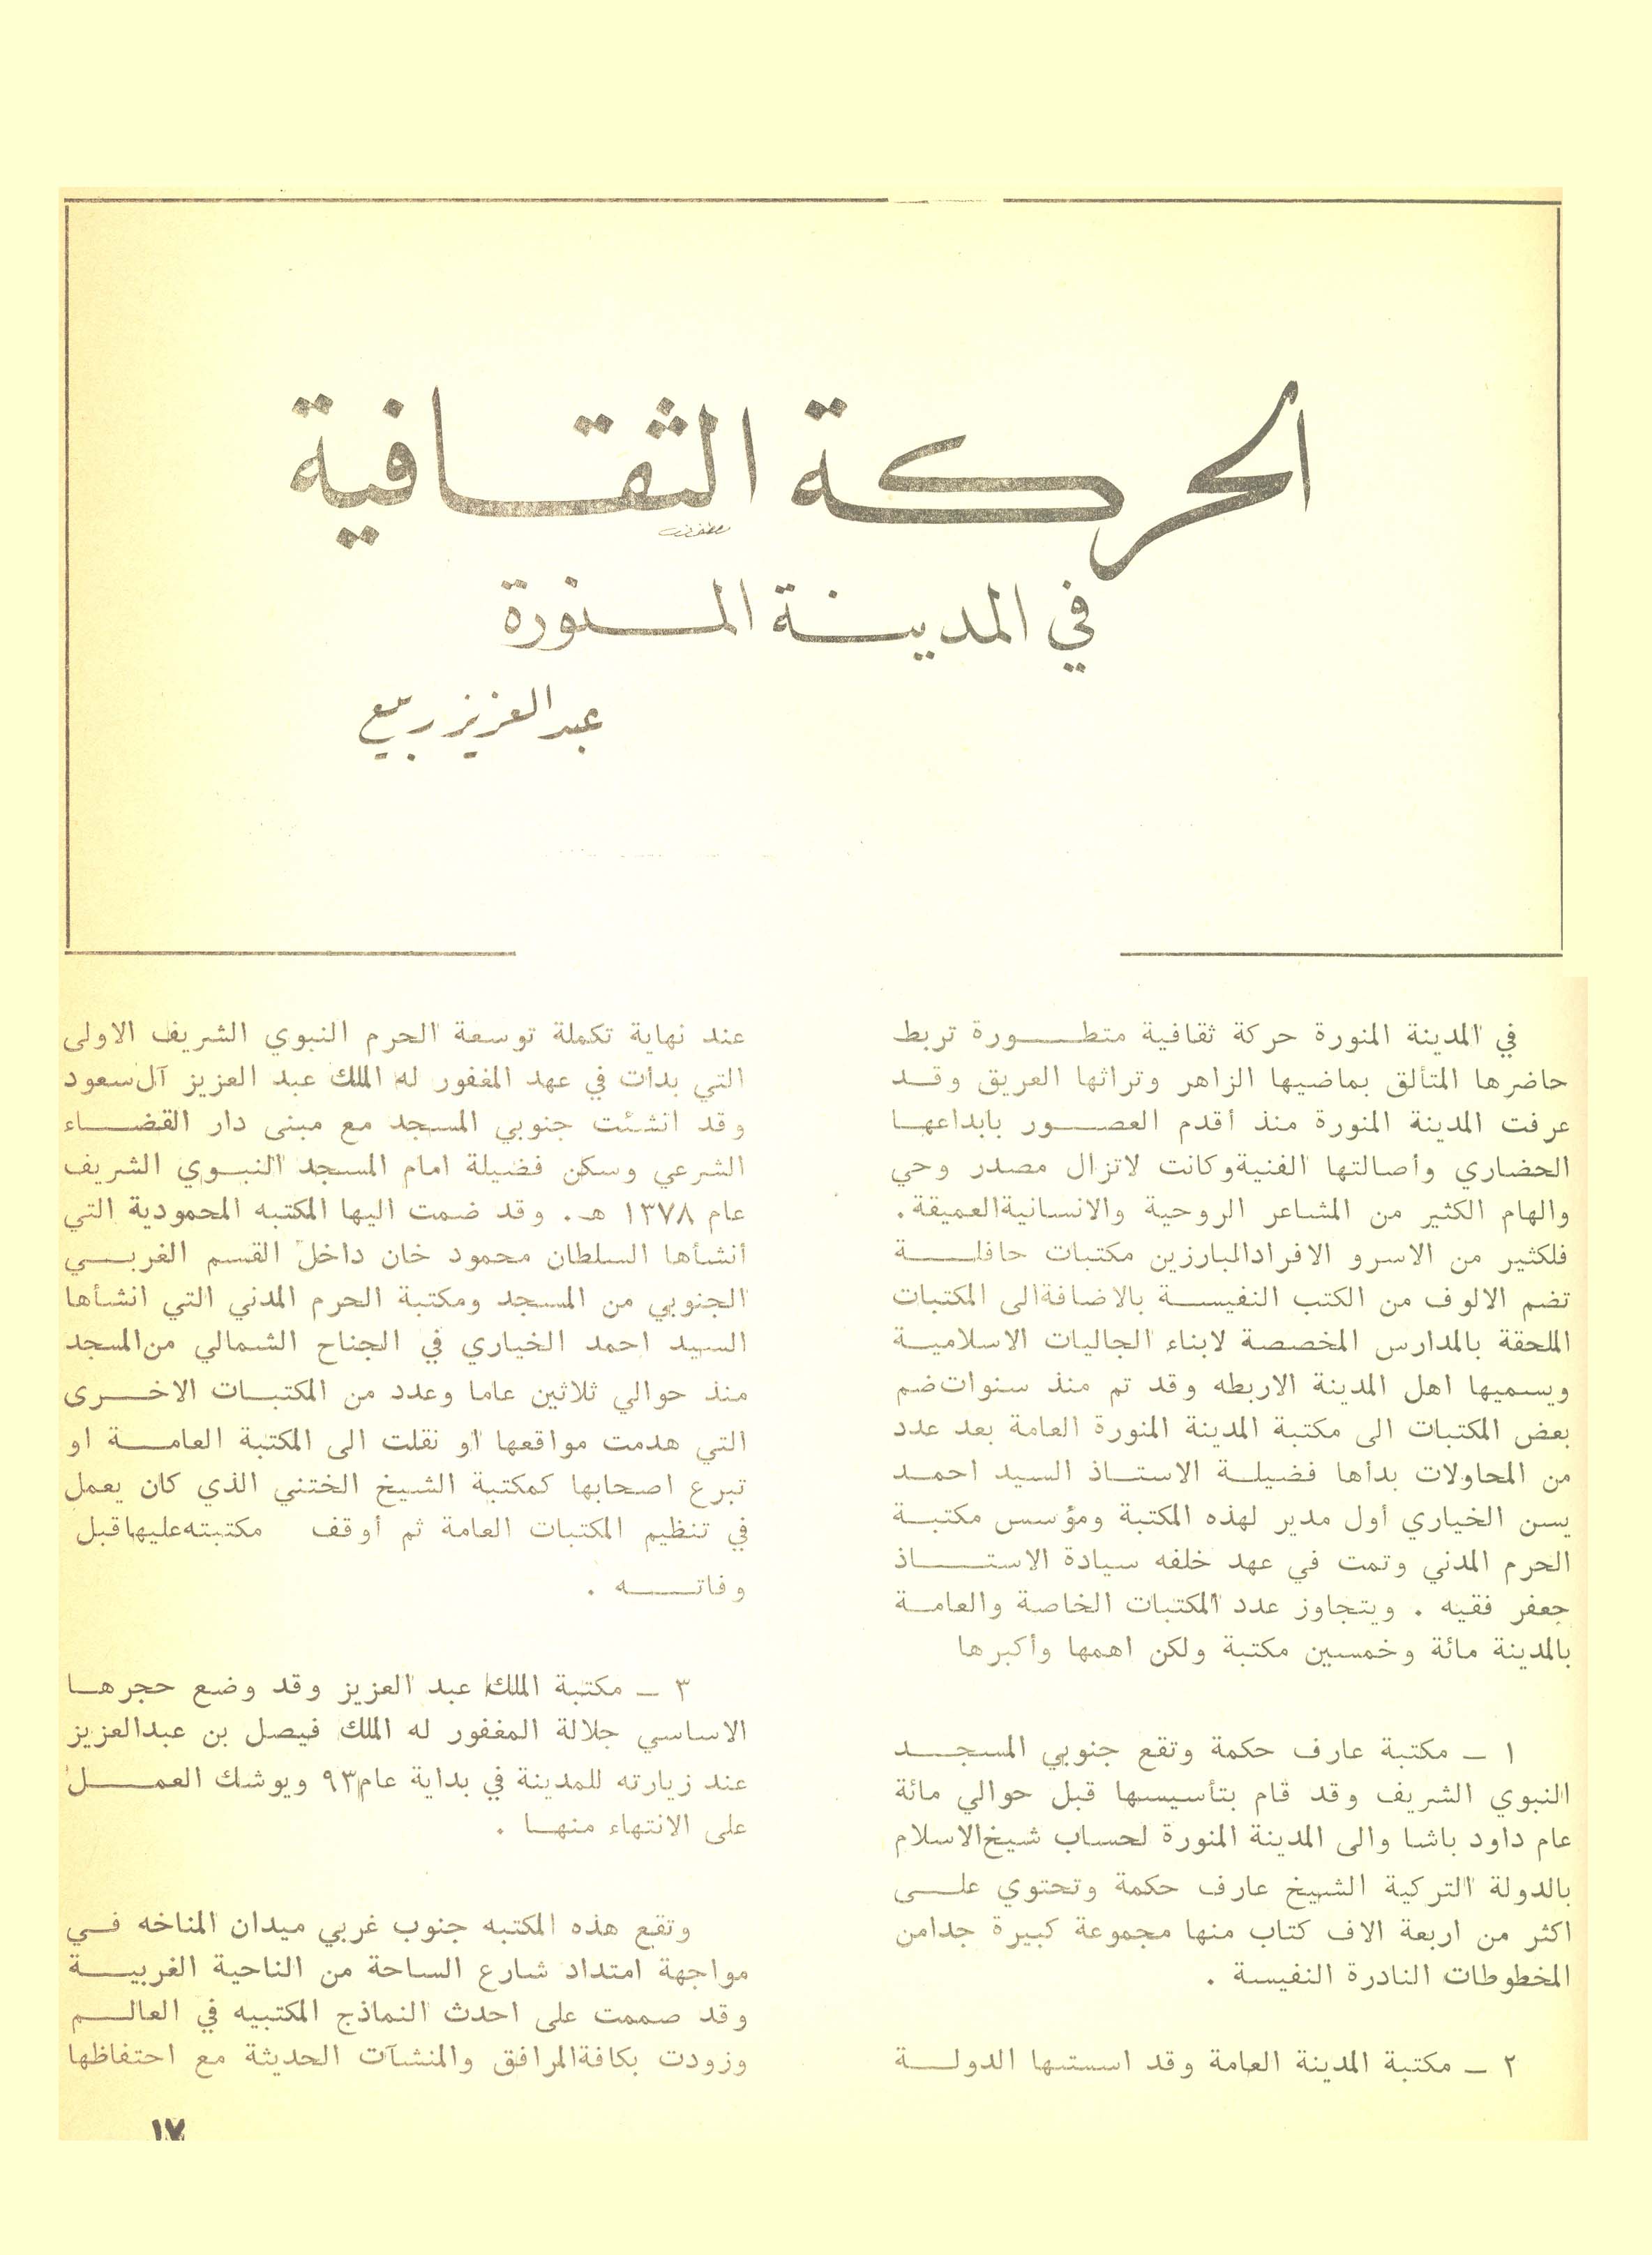 الحركة الثقافية
في المدينة المنورة
عبد العزيز ربيع
في المدينة المنورة حركة ثقافية متطورة تربط
حاضرها المتألق بماضيها الزاهر وتراثها العريق وقد
عرفت المدينة المنورة منذ أقدم العصور بابداعها
الحضاري وأصالتها الفنية وكانت لاتزال مصدر وحي
والهام الكثير من المشاعر الروحية والانسانية العميقة .
فلكثير من الاسرو الافراد المبارزين مكتبات حافلة
تضم الالوف من الكتب النفيسة بالاضافة الى المكتبات
الملحقة بالمدارس المخصصة لابناء الجاليات الاسلامية
ويسميها اهل المدينة الاربطه وقد تم منذ سنوات ضم
بعض المكتبات الى مكتبة المدينة المنورة العامة بعد عدد
من المحاولات بدأها فضيلة الاستاذ السيد احمد
يسن الخياري أول مدير لهذه المكتبة ومؤسس مكتبة
الحرم المدني وتمت في عهد خلفه سيادة الاستاذ
جعفر فقيه . ويتجاوز عدد المكتبات الخاصة والعامة
بالمدينة مائة وخمسين مكتبة ولكن اهمها وأكبرها
١ ـ مكتبة عارف حكمة وتقع جنوبي المسجد
النبوي الشريف وقد قام بتأسيسها قبل حوالي مائة
عام داود باشا والى المدينة المنورة لحساب شيخ الاسلام
بالدولة التركية الشيخ عارف حكمة وتحتوي على
اكثر من اربعة الاف كتاب منها مجموعة كبيرة جدا من
المخطوطات النادرة النفيسة .
٢ ـ مكتبة المدينة العامة وقد اسستها الدولة
عند نهاية تكملة توسعة الحرم النبوي الشريف الاولى
التي بدأت في عهد المغفور له الملك عبد العزيز آل سعود
وقد انشئت جنوبي المسجد مع مبنى دار القضاء
الشرعي وسكن فضيلة امام المسجد النبوي الشريف
عام ١٣٧٨ هـ. وقد ضمت اليها المكتبه المحمودية التي
أنشأها السلطان محمود خان داخل القسم الغربي
الجنوبي من المسجد ومكتبة الحرم المدني التي انشأها
السيد احمد الخياري في الجناح الشمالي من المسجد
منذ حوالي ثلاثين عاما وعدد من المكتبات الاخرى
التي هدمت مواقعها او نقلت الى المكتبة العامة او
تبرع اصحابها كمكتبة الشيخ الختني الذي كان يعمل
في تنظيم المكتبات العامة ثم أوقف مكتبته عليها قبل
وفاته .
٣ ـ مكتبة الملك عبد العزيز وقد وضع حجرها
الاساسي جلالة المغفور له الملك فيصل بن عبدالعزيز
عند زيارته للمدينة في بداية عام ٩٣ ويوشك العمل
على الانتهاء منها .
وتقع هذه المكتبه جنوب غربي ميدان المناخه في
مواجهة امتداد شارع الساحة من الناحية الغربية
وقد صممت على احدث النماذج المكتبيه في العالم
وزودت بكافة المرافق والمنشآت الحديثة مع احتفاظها
١٧